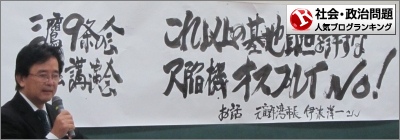 社会・政治問題
人気ブログランキング
鷹9条の会
講演会
これ以上の基地
欠陥機 オスプレイ No!
お話 元宜野湾市長 伊波洋一さん